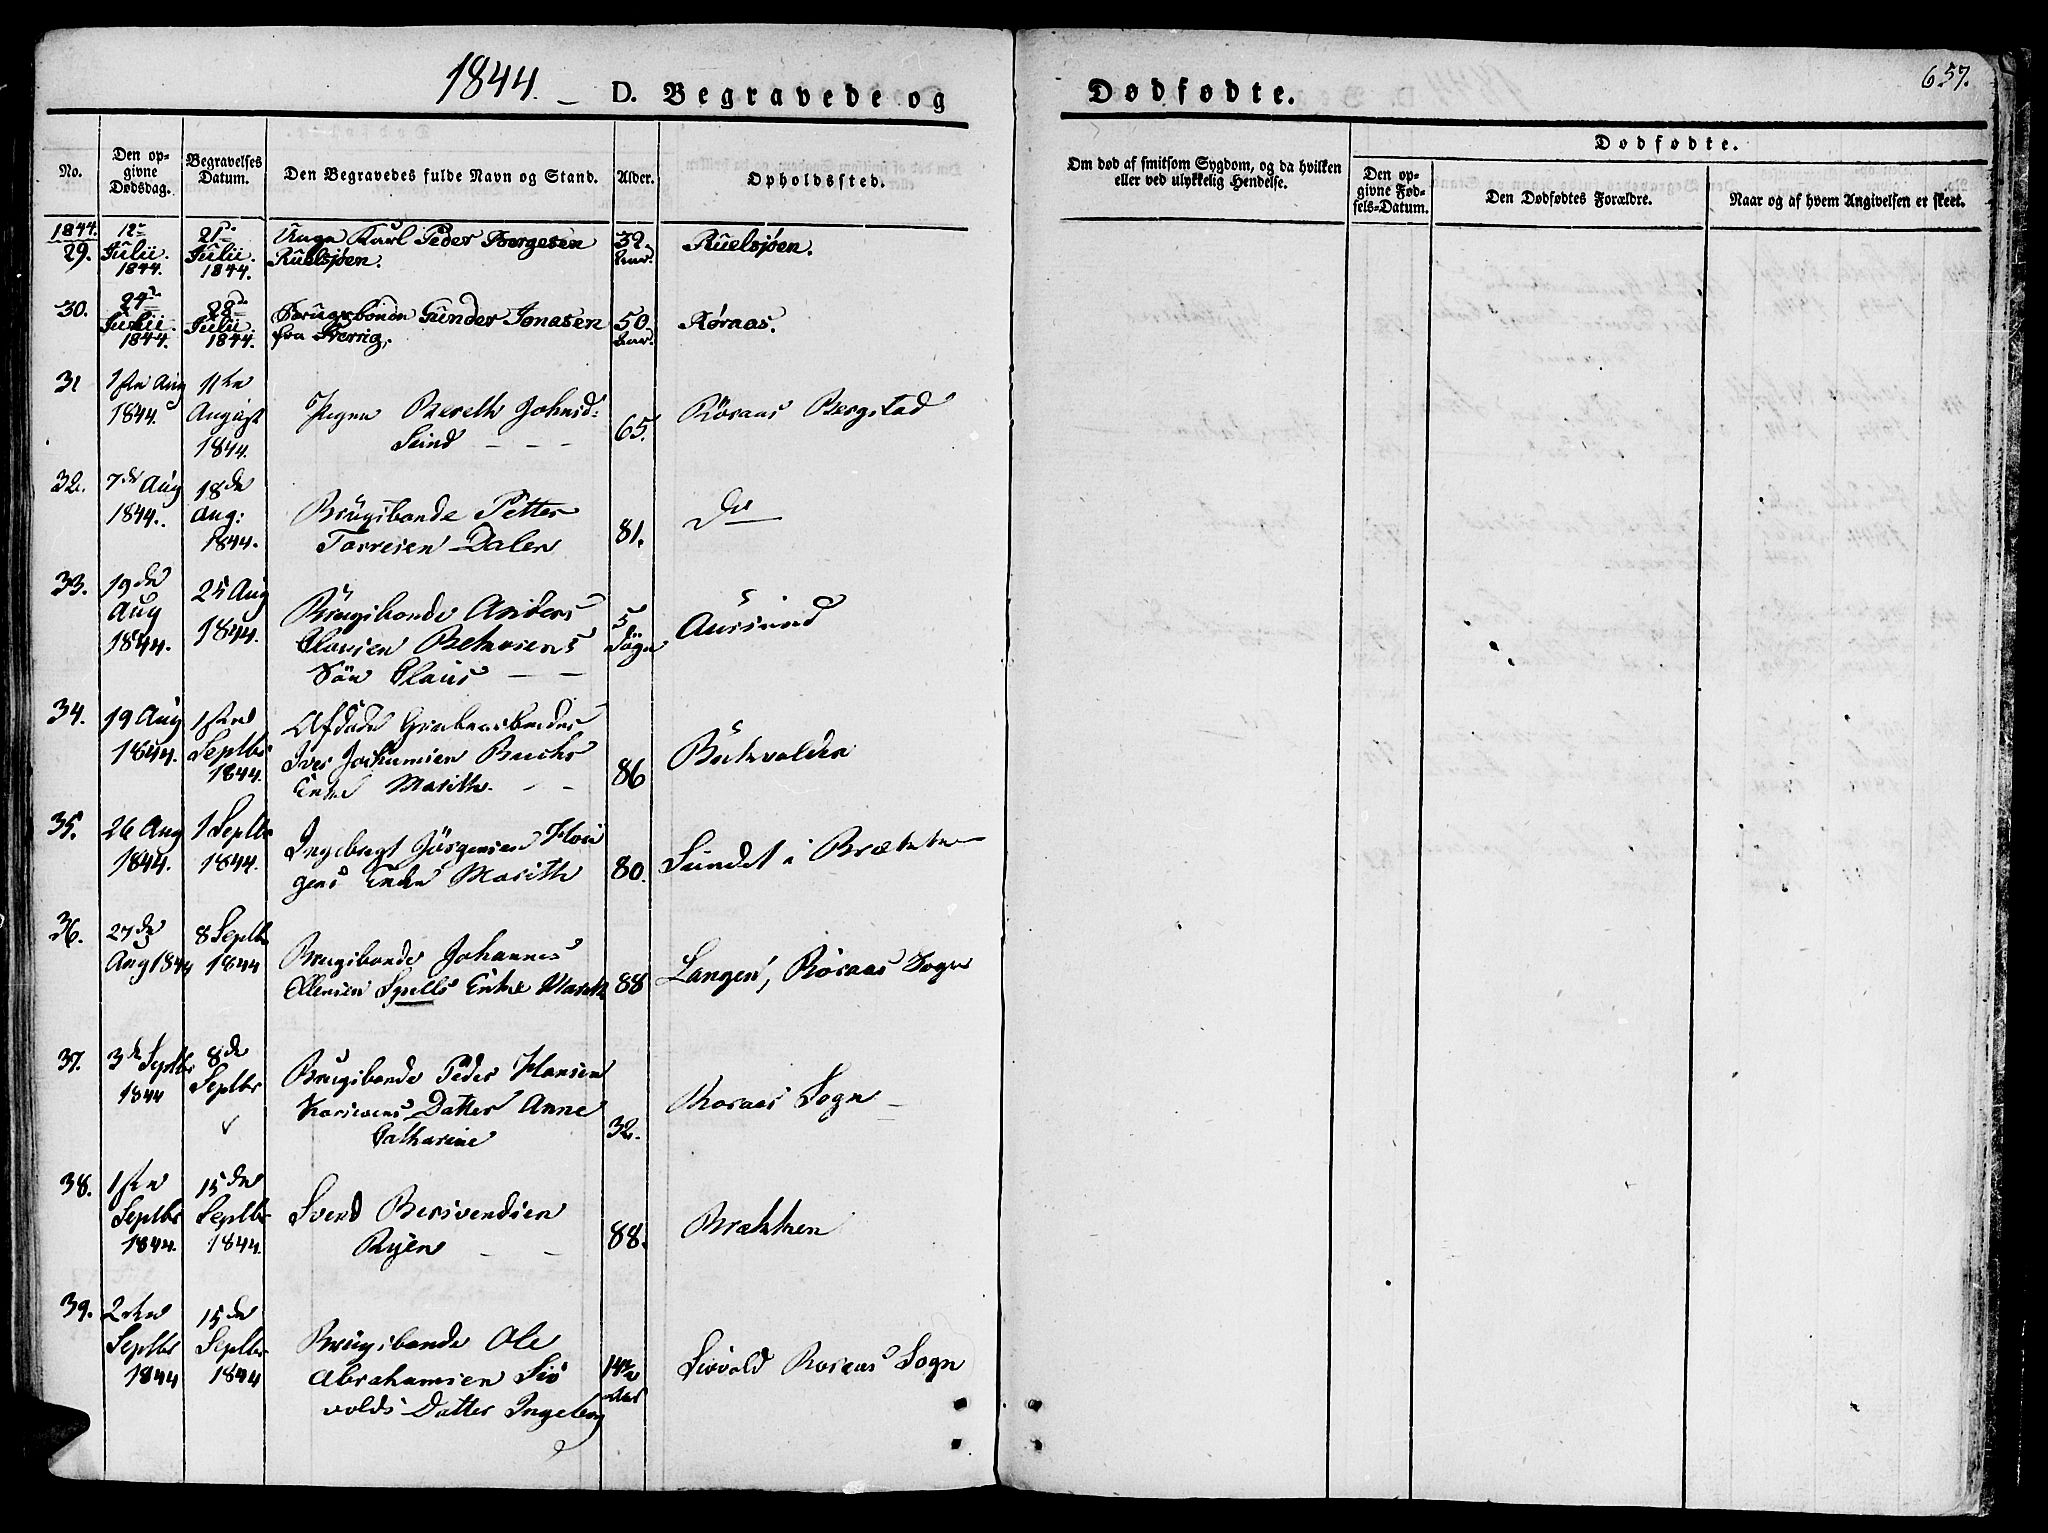 1844. – D. Begravede og Dødfødte. 657.
No. Den opgivne Dødsdag. Begravelses Datum. Den Begravedes fulde Navn og Stand. Alder. Opholdssted. Om død af smitsom Sygdom, og da hvilken eller ved ulykkelig Hendelse.
Dødfødte.
Den opgivne Fødsels-Datum. Den Dødfødtes Forældre. Naar og af hvem Angivelsen er skeet.
1844.
29. 12te Julii. 1844. 21de Julii. 1844. Unge Karl Peder Børgesen Ruelsjøen. 32. Aar. Ruelsjøen.
30. 24de Julii. 1844. 28de Julii. 1844. Brugsbonde Gunder Jonasen fra Sverrig. 50. Aar. Røraas.
31 1ste Aug 1844. 11te August 1844. Pigen Bereth Johnsd: Sund – – – 65. Röraas Bergstad
32. 7de Aug 1844. 18de Aug: 1844. Brugsbonde Petter Torresen Dalen 81. Do
33. 19de Aug 1844. 25 Aug 1844. Brugsbonde Anders Clausen Sön Claus – – 5 Dögn Aursund
34. 19 Aug 1844. 1ste Septbr 1844. Afdöde Iver Jochumsen Buchs Enke Marith. – – 86
35. 26 Aug 1844. 1 Septbr 1844. Ingebrigt Jörgensen Enke Marith 80. Sundet i Brækken
36. 27de Aug 1844 8 Septbr 1844 Brugsbonde Johannes Ellensen Spells Enke Marith 88 Langen, Röraas Sogn
37. 3de Septbr 1844 8de Septbr Brugsbonde Peder Hansen Datter Anne Catharine 32. Roraas Sogn –
38. 1ste Septbr 1844. 15de Septbr 1844. Svend Bersvendsen Ryen – – 88. Brækken
39. 2den Septbr 1844 15de Septbr 1844 Brugsbonde Ole Abrahamsen Sivvolds Datter Ingeborg 14 1/2 Aar Sivvold Roraas Sogn